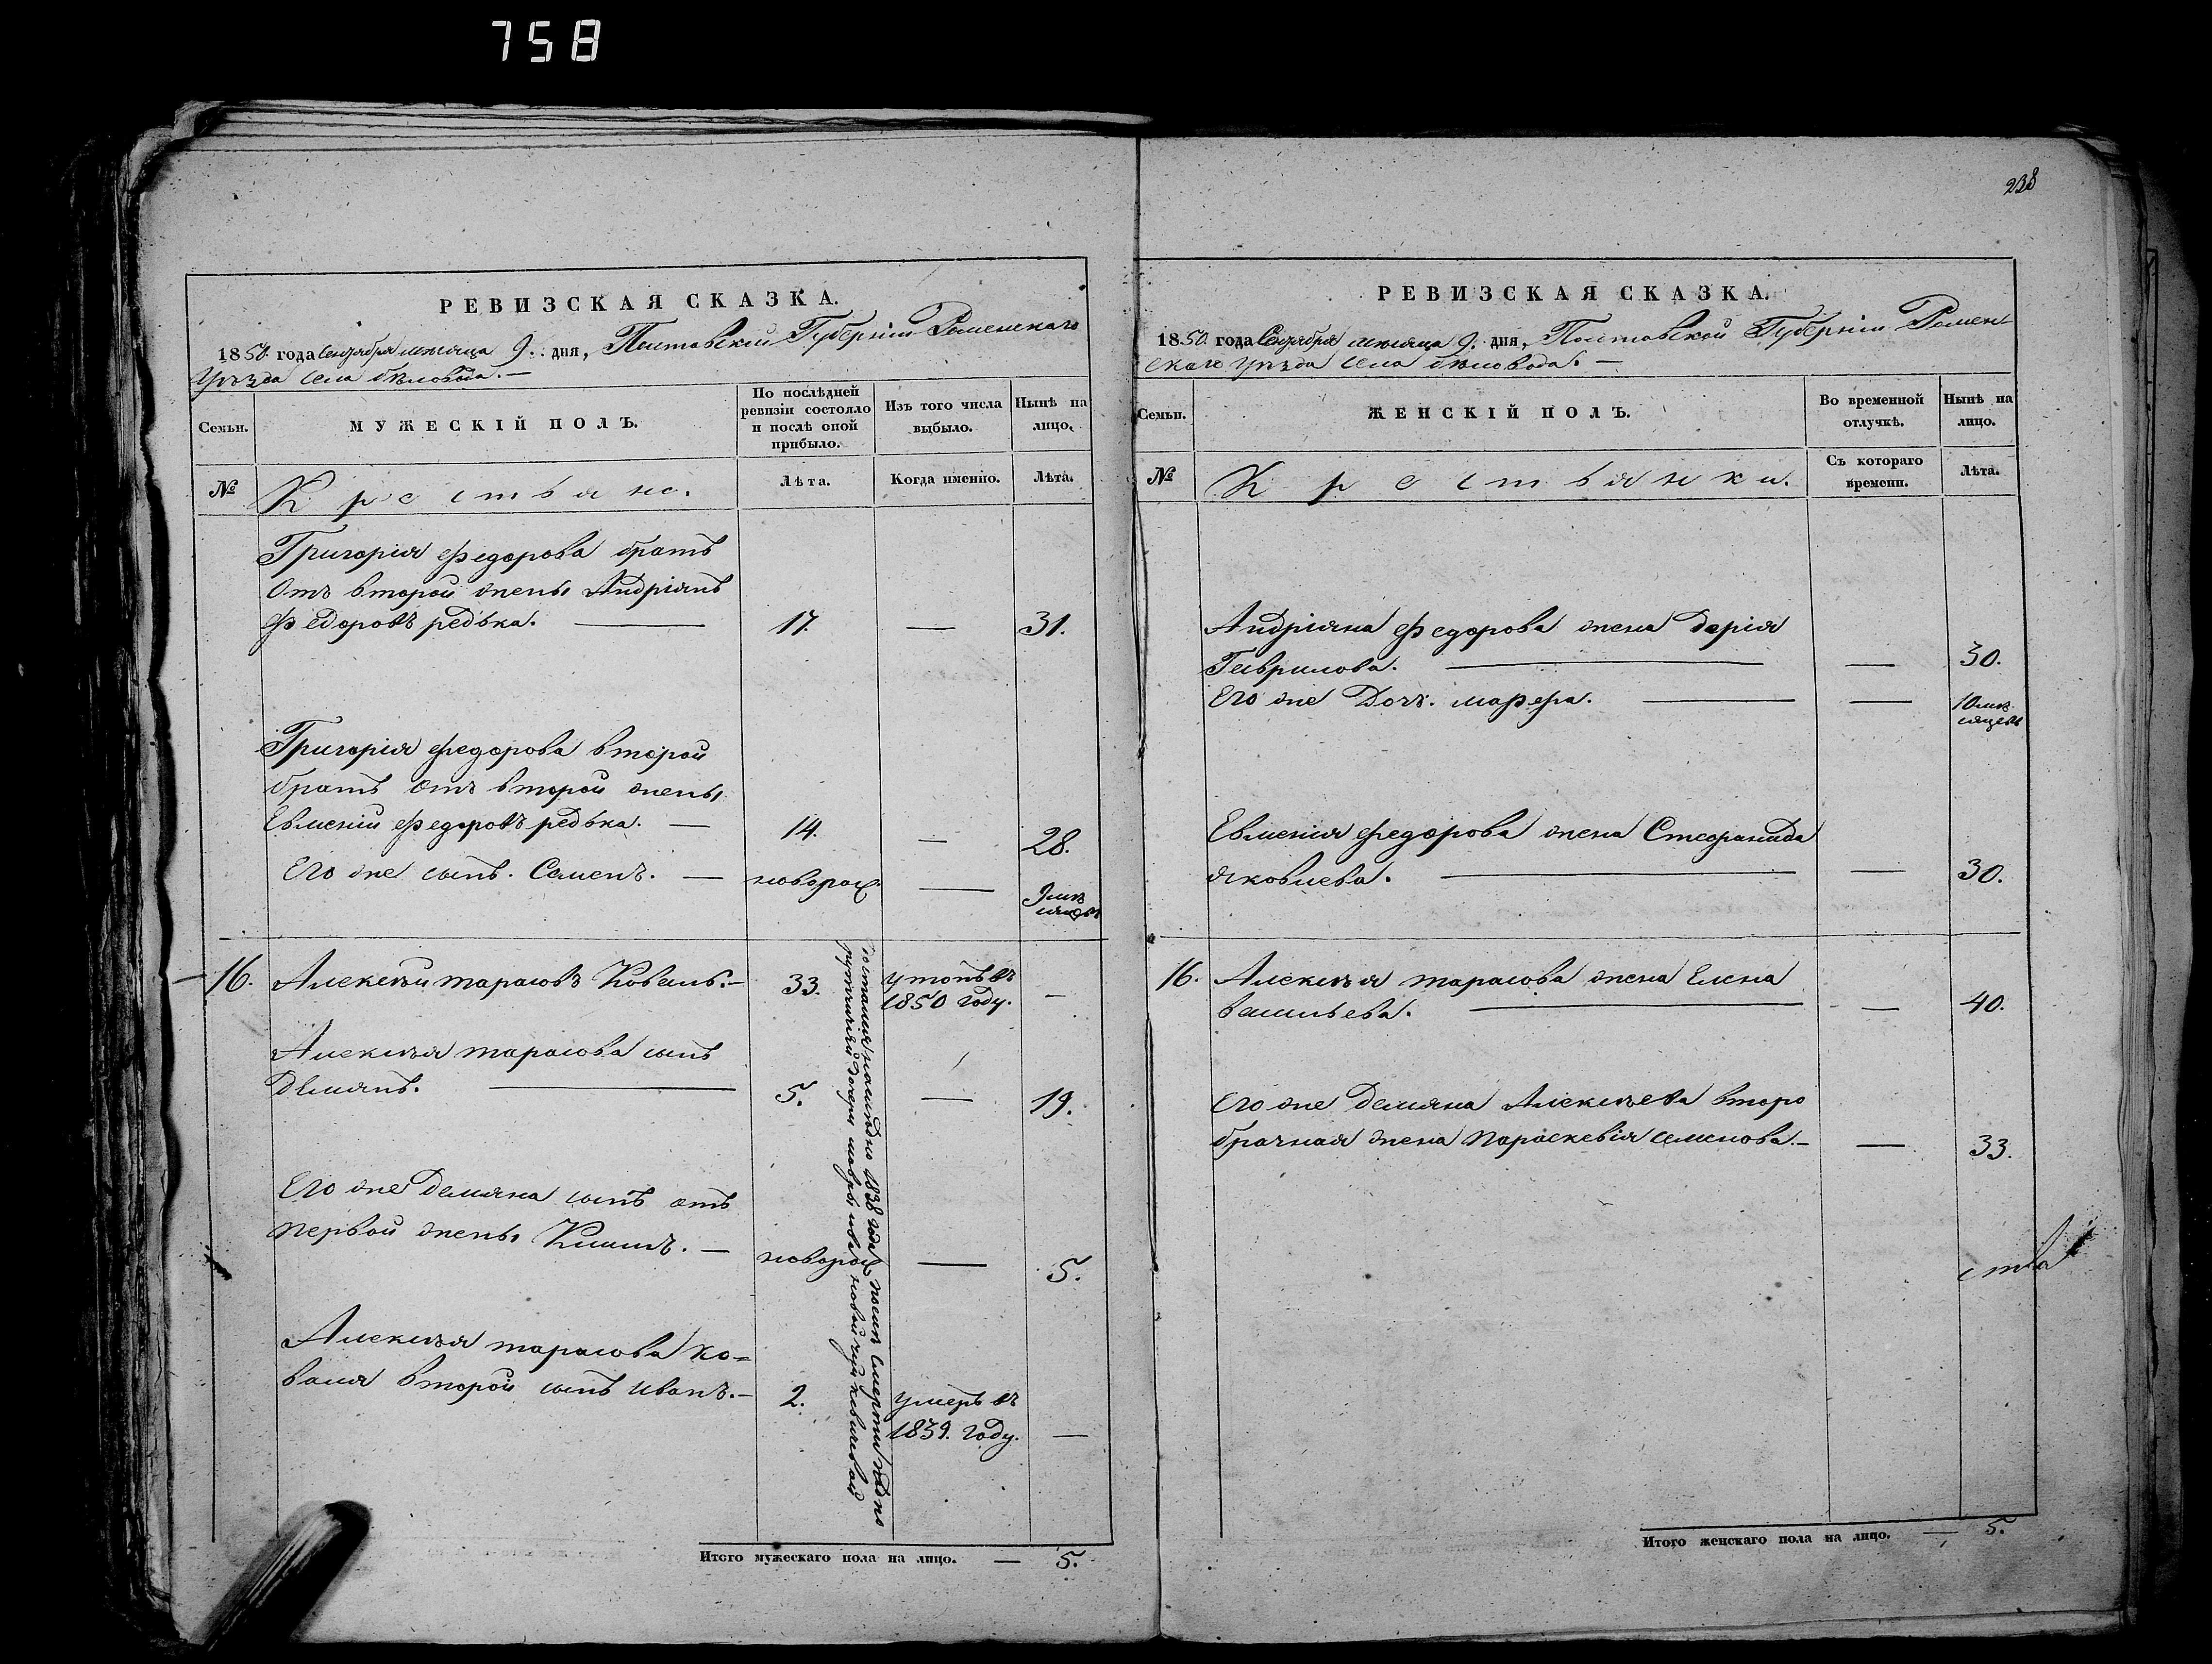 758
РЕВИЗСКАЯ СКАЗКА.
1850 года Сентября месяца 9. дня, Полтавской Губерніи Роменскаго
Уѣзда села бѣловода. —
Семьи.
МУЖЕСКІЙ ПОЛЪ.
По послѣдней
ревизіи состояло
и послѣ оной
прибыло.
Изъ того числа
выбыло.
Нынѣ на
лицо.
№
Крестьяне.
Лѣта.
Когда именно.
Лѣта.
Григорія Федорова братъ
отъ второй жены Андріянъ
Федоровъ редька. — 17. — 31.
Григорія Федорова второй
братъ отъ второй жены
Евменій Федоровъ редька. — 14. — 28.
Его же сынъ. Семенъ. — новорож. — 9 мѣ
сяцевъ
16. Алексѣй тарасовъ Коваль. — 33. утопъ въ
1850 году. —
Алексѣя тарасова сынъ
демянъ. — 5. — 19.
Его же Демяна сынъ отъ
первой жены Климъ. — новорож — 5.
Алексѣя тарасова ко=
валя второй сынъ иванъ. — 2. умеръ въ
1839. году. —
1838 года после смерти
дочери
Итого мужескаго пола на лицо. — 5.
238
РЕВИЗСКАЯ СКАЗКА.
1850 года Сентября месяца 9. дня, Полтавской Губерніи Ромен
скаго уѣзда села бѣловода. —
Семьи.
ЖЕНСКІЙ ПОЛЪ.
Во временной
отлучкѣ.
Нынѣ на
лицо.
№
Крестьянки.
Съ котораго
времени.
Лѣта.
Андріяна Федорова жена дарія
Гаврилова. — — 30.
Его же Дочь. марфа. — — 10 мѣ
сяцевъ
Евменія Федорова жена Стефанида
яковлева. — — 30.
16. Алексѣя тарасова жена Елена
васильева. — — 40.
Его же демяна Алексѣева второ
брачная жена параскевія семенова. — — 33.
ства
Итого женскаго пола на лицо. — 5.